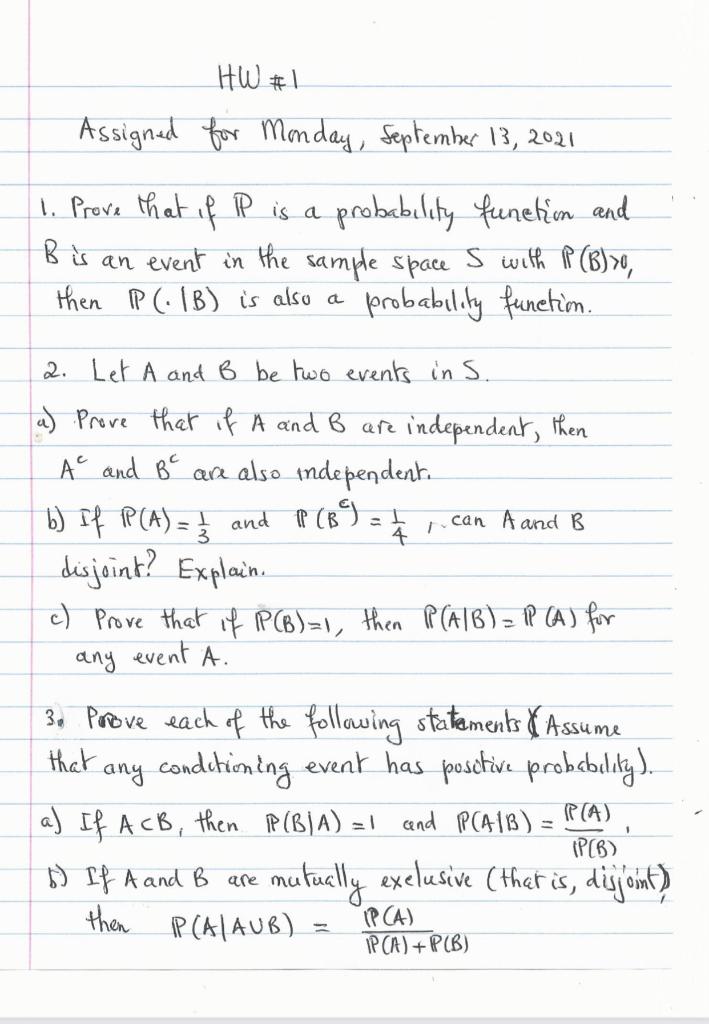 HW #1
Assigned for Monday, September 13, 2021
1. Prove that if ℙ is a probability function and
B is an event in the sample space S with ℙ(B)>0,
then ℙ(·|B) is also a probability function.
2. Let A and B be two events in S.
a) Prove that if A and B are independent, then
Aᶜ and Bᶜ are also independent.
b) If ℙ(A) = 1/3 and ℙ(Bᶜ) = 1/4, can A and B
disjoint? Explain.
c) Prove that if ℙ(B)=1, then ℙ(A|B) = ℙ(A) for
any event A.
3. Prove each of the following statements (Assume
that any conditioning event has positive probability).
a) If A⊂B, then ℙ(B|A) = 1 and ℙ(A|B) = ℙ(A)/ℙ(B),
b) If A and B are mutually exclusive (that is, disjoint),
then ℙ(A|A∪B) = ℙ(A)/ℙ(A)+ℙ(B)